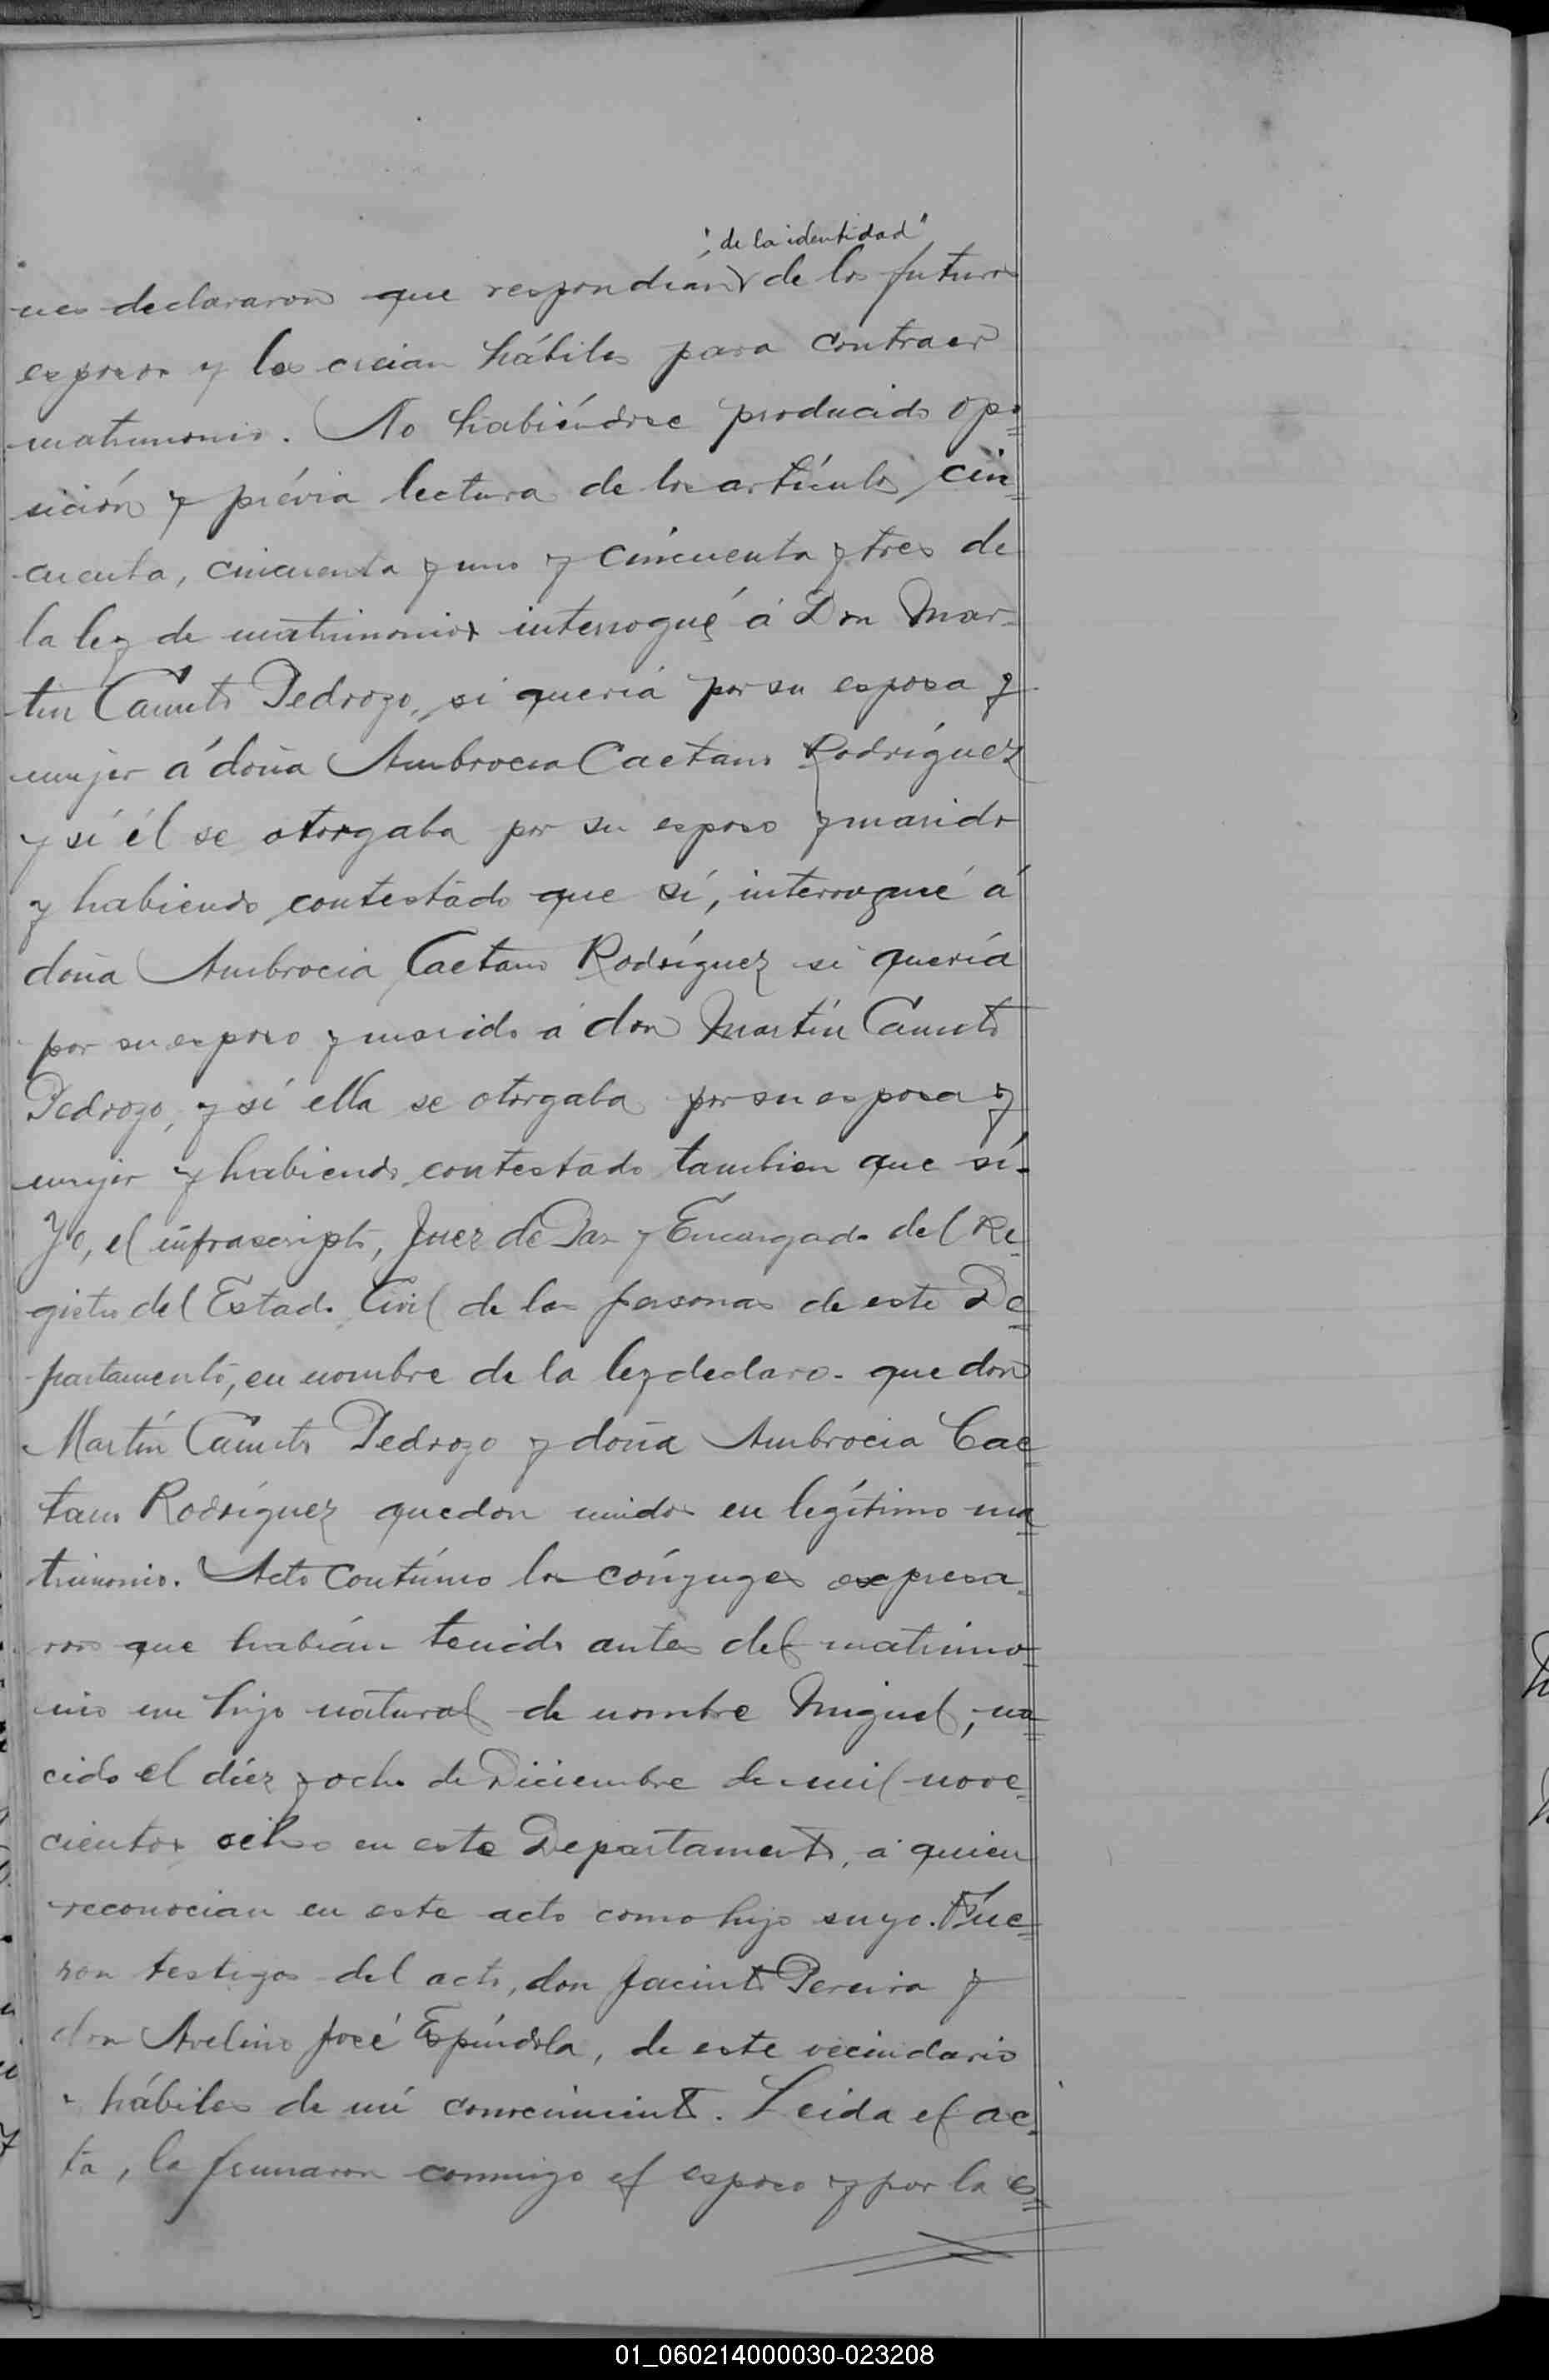 "de la identidad"
nes declararon que respondían de los futuros
esposos y los creian hábiles para contraer
matrimonio. No habiéndose producido opo=
sición y prévia lectura de los artículos cin=
cuenta, cincuenta y uno y cincuenta y tres de
la ley de matrimonios interrogué á Don Mar-
tin Canuto Pedrozo, si quería por su esposa y
mujer á doña Ambrocia Caetano Rodríguez
y si él se otorgaba por su esposo y marido
y habiendo contestado que sí, interrogué á
doña Ambrocia Caetano Rodríguez si quería
por su esposo y marido á don Martín Canuto
Pedrozo, y si ella se otorgaba por su esposa y
mujer y habiendo contestado tambien que sí.
Yo, el infrascripto, Juez de Paz y Encargado del Re=
gistro del Estado Civil de las personas de este De=
partamento, en nombre de la ley declaro que don
Martín Canuto Pedrozo y doña Ambrocia Cae=
tano Rodríguez quedan unidos en legítimo ma=
trimonio. Acto contínuo los cónyuges expresa=
ron que habían tenido antes del matrimo=
nio un hijo natural de nombre Miguel, na=
cido el diez y ocho de Diciembre de mil nove=
cientos ocho en este Departamento, á quien
reconocian en este acto como hijo suyo. Fue=
ron testigos del acto, don Jacinto Pereira y
don Avelino José Espíndola, de este vecindario
hábiles de mi conocimiento. Leida el ac=
ta, la firmaron conmigo el esposo y por la es=
01_060214000030-023208